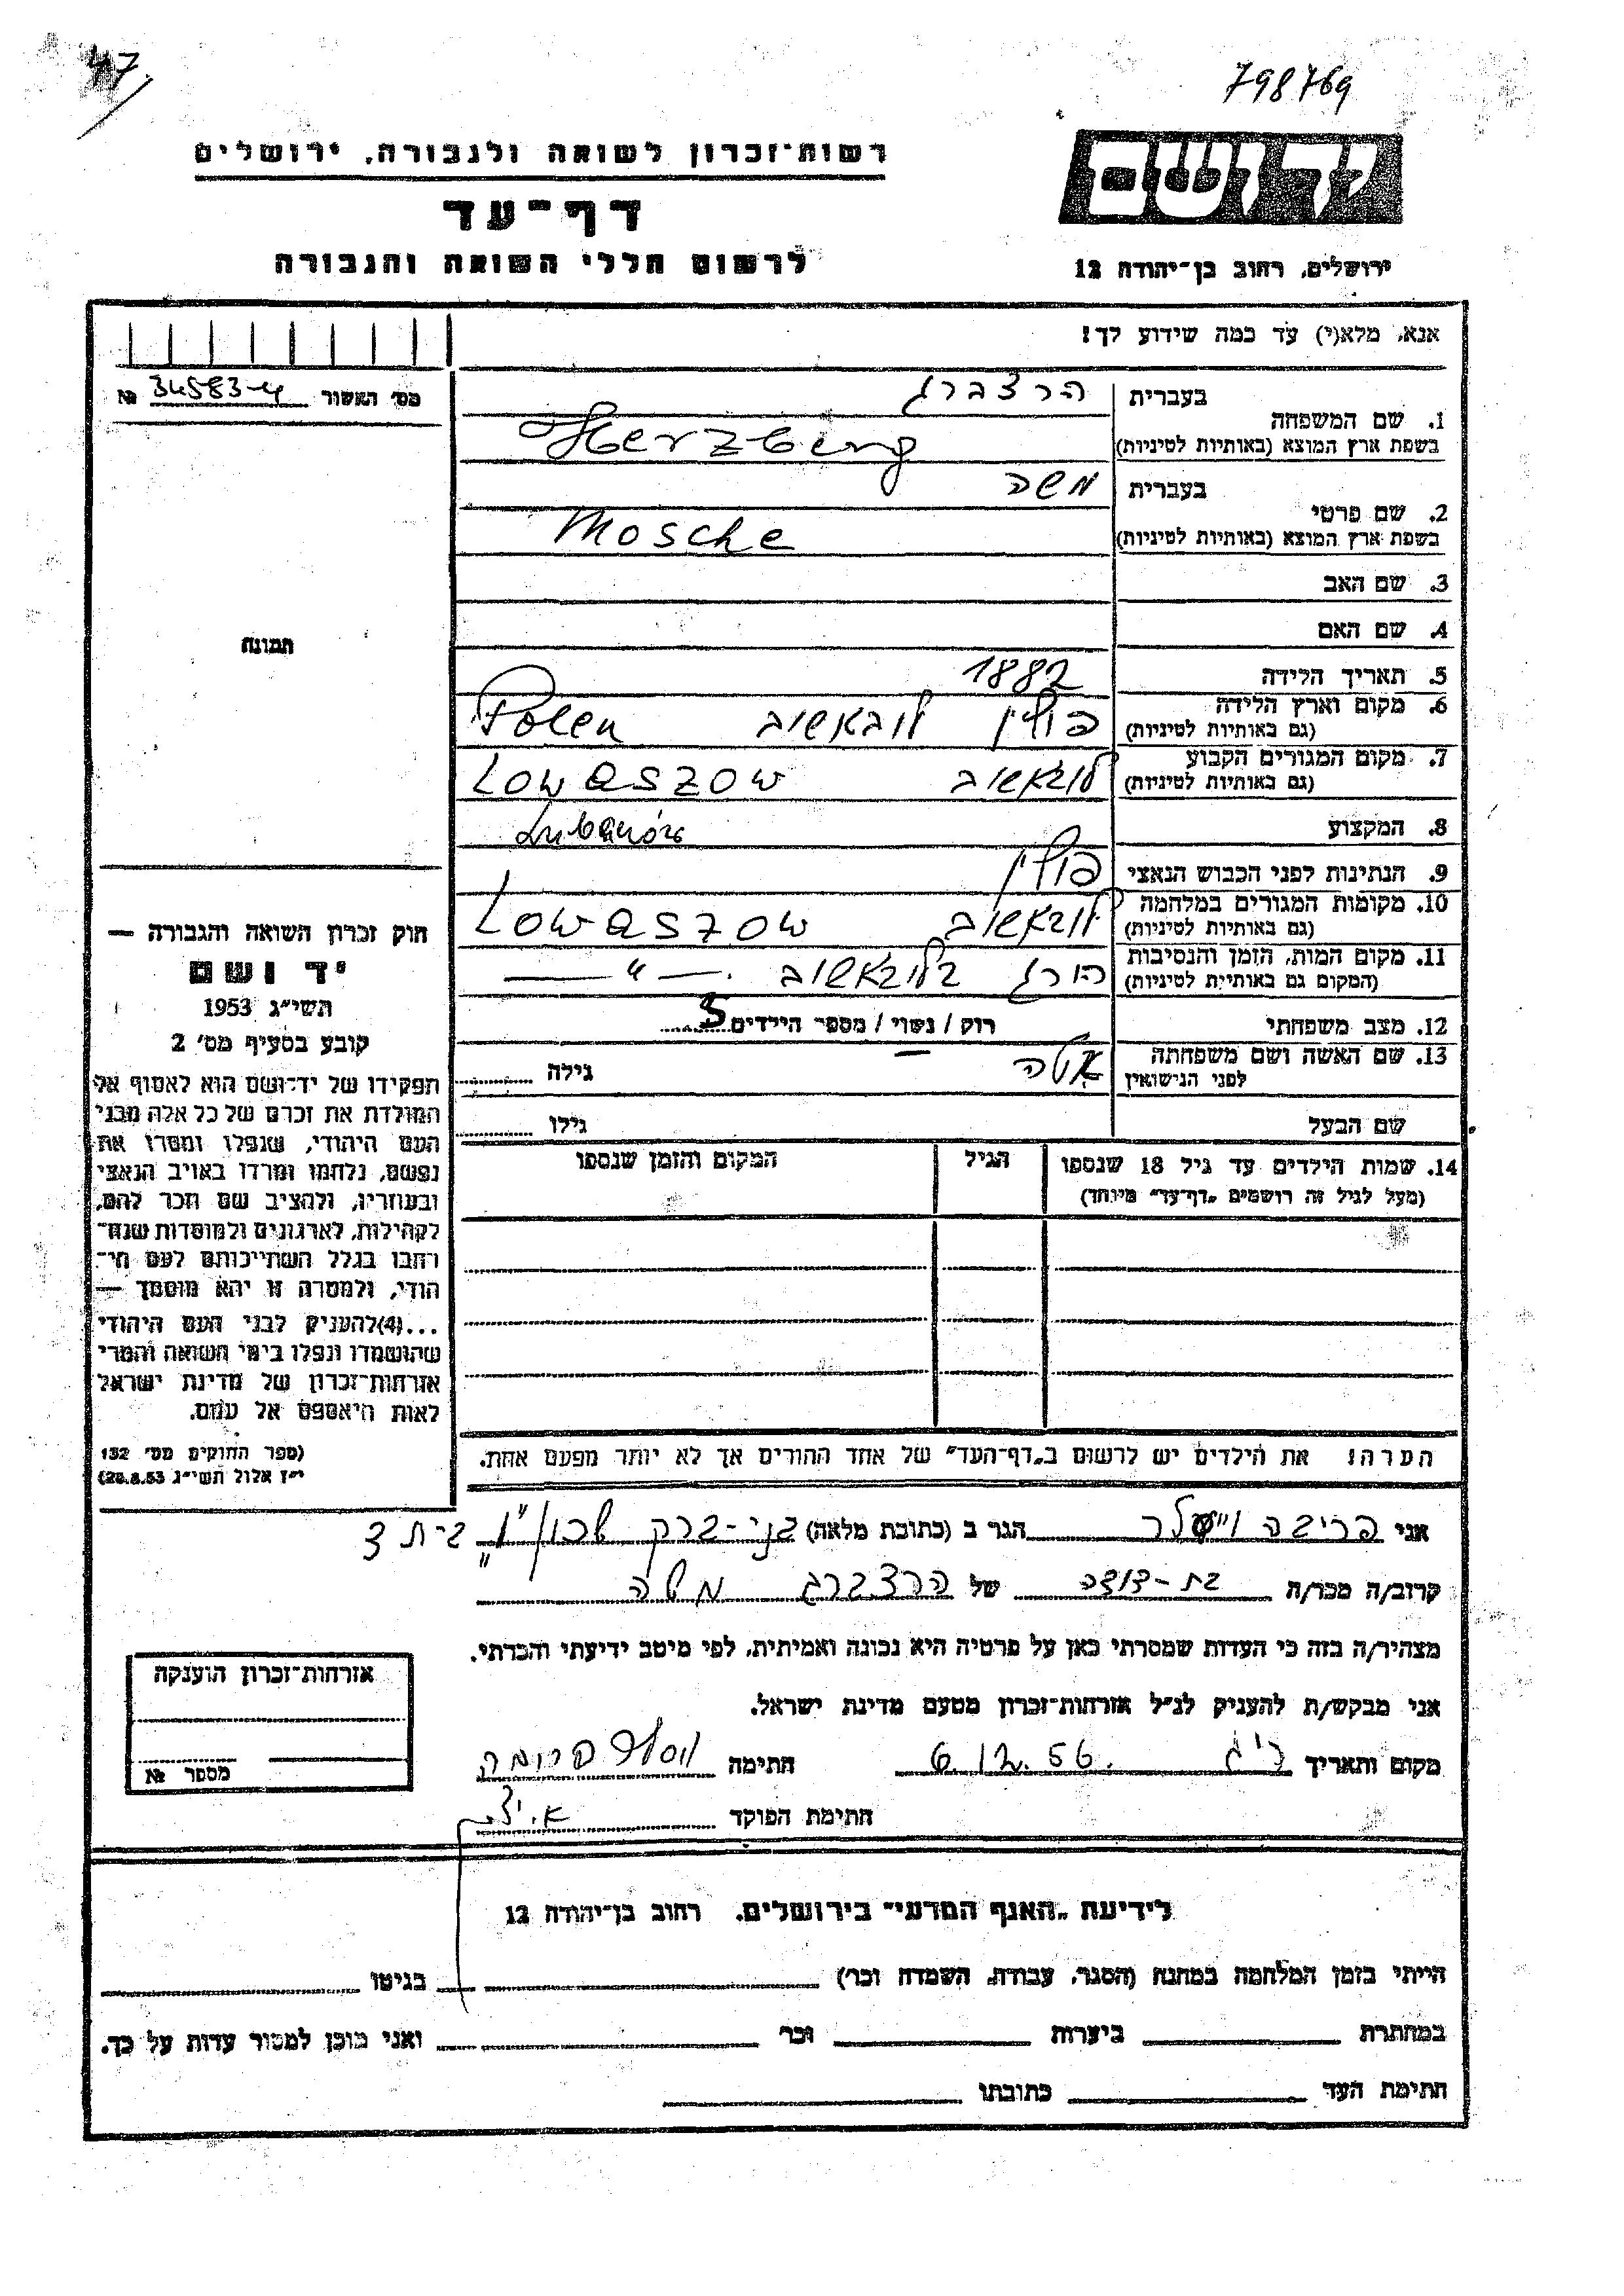 47
798769
יד ושם
רשות־זכרון לשואה ולגבורה, ירושלים
דף־עד
לרשום חללי השואה והגבורה
ירושלים, רחוב בן־יהודה 12
אנא, מלא(י) עד כמה שידוע לך!
מס׳ האשור № 34583-4
תמונה
1. שם המשפחה
בעברית הרצברג
בשפת ארץ המוצא (באותיות לטיניות) Herzberg
2. שם פרטי
בעברית משה
בשפת ארץ המוצא (באותיות לטיניות) Mosche
3. שם האב
4. שם האם
5. תאריך הלידה 1882
6. מקום וארץ הלידה
(גם באותיות לטיניות) פולין לובאשוב Polen
7. מקום המגורים הקבוע
(גם באותיות לטיניות) לובאשוב Lowaszow
8. המקצוע
9. הנתינות לפני הכבוש הנאצי פולין
10. מקומות המגורים במלחמה
(גם באותיות לטיניות) לובאשוב Lowaszow
11. מקום המות, הזמן והנסיבות
(המקום גם באותיות לטיניות) הורג בלובאשוב — " —
12. מצב משפחתי רוק / נשוי / מספר הילדים 5
13. שם האשה ושם משפחתה
לפני הנישואין גילה
שם הבעל גילו
14. שמות הילדים עד גיל 18 שנספו
(מעל לגיל זה רושמים „דף־עד״ מיוחד)
הגיל
המקום והזמן שנספו
הערה: את הילדים יש לרשום ב„דף־העד״ של אחד ההורים אך לא יותר מפעם אחת.
חוק זכרון השואה והגבורה —
יד ושם
תשי״ג 1953
קובע בסעיף מס׳ 2
תפקידו של יד־ושם הוא לאסוף אל
המולדת את זכרם של כל אלה מבני
העם היהודי, שנפלו ומסרו את
נפשם, נלחמו ומרדו באויב הנאצי
ובעוזריו, ולהציב שם וזכר להם,
לקהילות, לארגונים ולמוסדות שנח־
רבו בגלל השתייכותם לעם הי־
הודי, ולמטרה זו יהא מוסמך —
...(4)להעניק לבני העם היהודי
שהושמדו ונפלו בימי השואה והמרי
אזרחות־זכרון של מדינת ישראל
לאות היאספם אל עמם.
(ספר החוקים מס׳ 132
י״ז אלול תשי״ג 28.8.53)
אני הגר ב (כתובת מלאה) בני-ברק
קרוב/ה מכר/ה בת-דודה של הרצברג משה
מצהיר/ה בזה כי העדות שמסרתי כאן על פרטיה היא נכונה ואמיתית, לפי מיטב ידיעתי והכרתי.
אני מבקש/ת להעניק לנ״ל אזרחות־זכרון מטעם מדינת ישראל.
מקום ותאריך 6.12.56 חתימה
חתימת הפוקד
אזרחות־זכרון הוענקה
מספר №
לידיעת „האגף המדעי״ בירושלים, רחוב בן־יהודה 12
הייתי בזמן המלחמה במחנה (הסגר, עבודה, השמדה וכו׳) בגיטו
במחתרת ביערות וכו׳ ואני מוכן למסור עדות על כך.
חתימת העד כתובתו